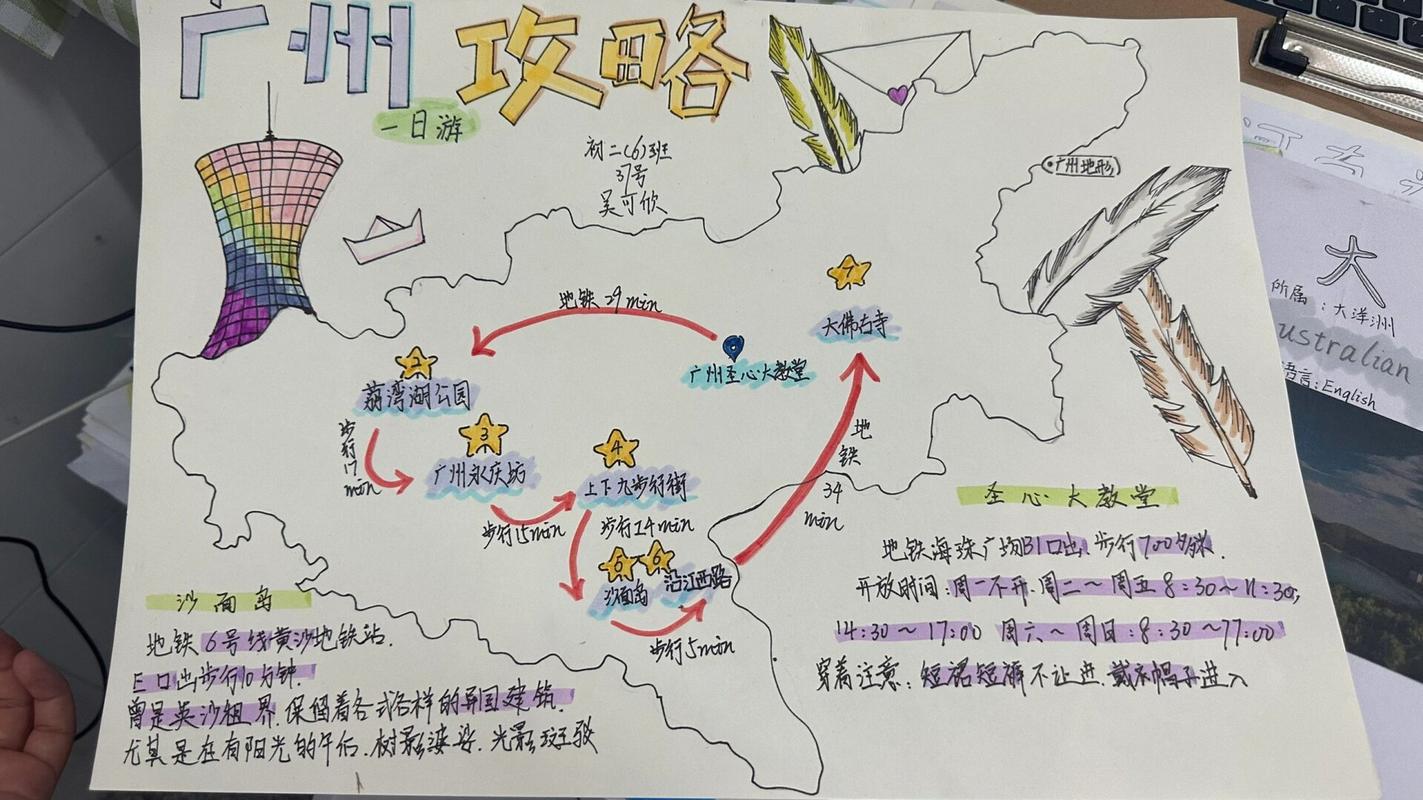 广州攻略
一日游
初二(6)班
37号
吴可欣
广州地形
7
大佛古寺
地铁29min
广州圣心大教堂
2
荔湾湖公园
步行17min
3
广州永庆坊
4
上下九步行街
步行15min
步行14min
地铁
34
min
5
6
沙面岛
沿江西路
步行5min
沙面岛
地铁6号线黄沙地铁站.
E口出步行10分钟.
曾是英沙租界.保留着各式各样的异国建筑.
尤其是在有阳光的午后.树影婆娑.光影斑驳
圣心大教堂
地铁海珠广场B1口出,步行700多米.
开放时间:周一不开.周二～周五8:30～11:30,
14:30～17:00 周六～周日:8:30～17:00
穿着注意:短裙短裤不让进.戴帽子进入
大
所属:大洋洲
ustralian
语言:English